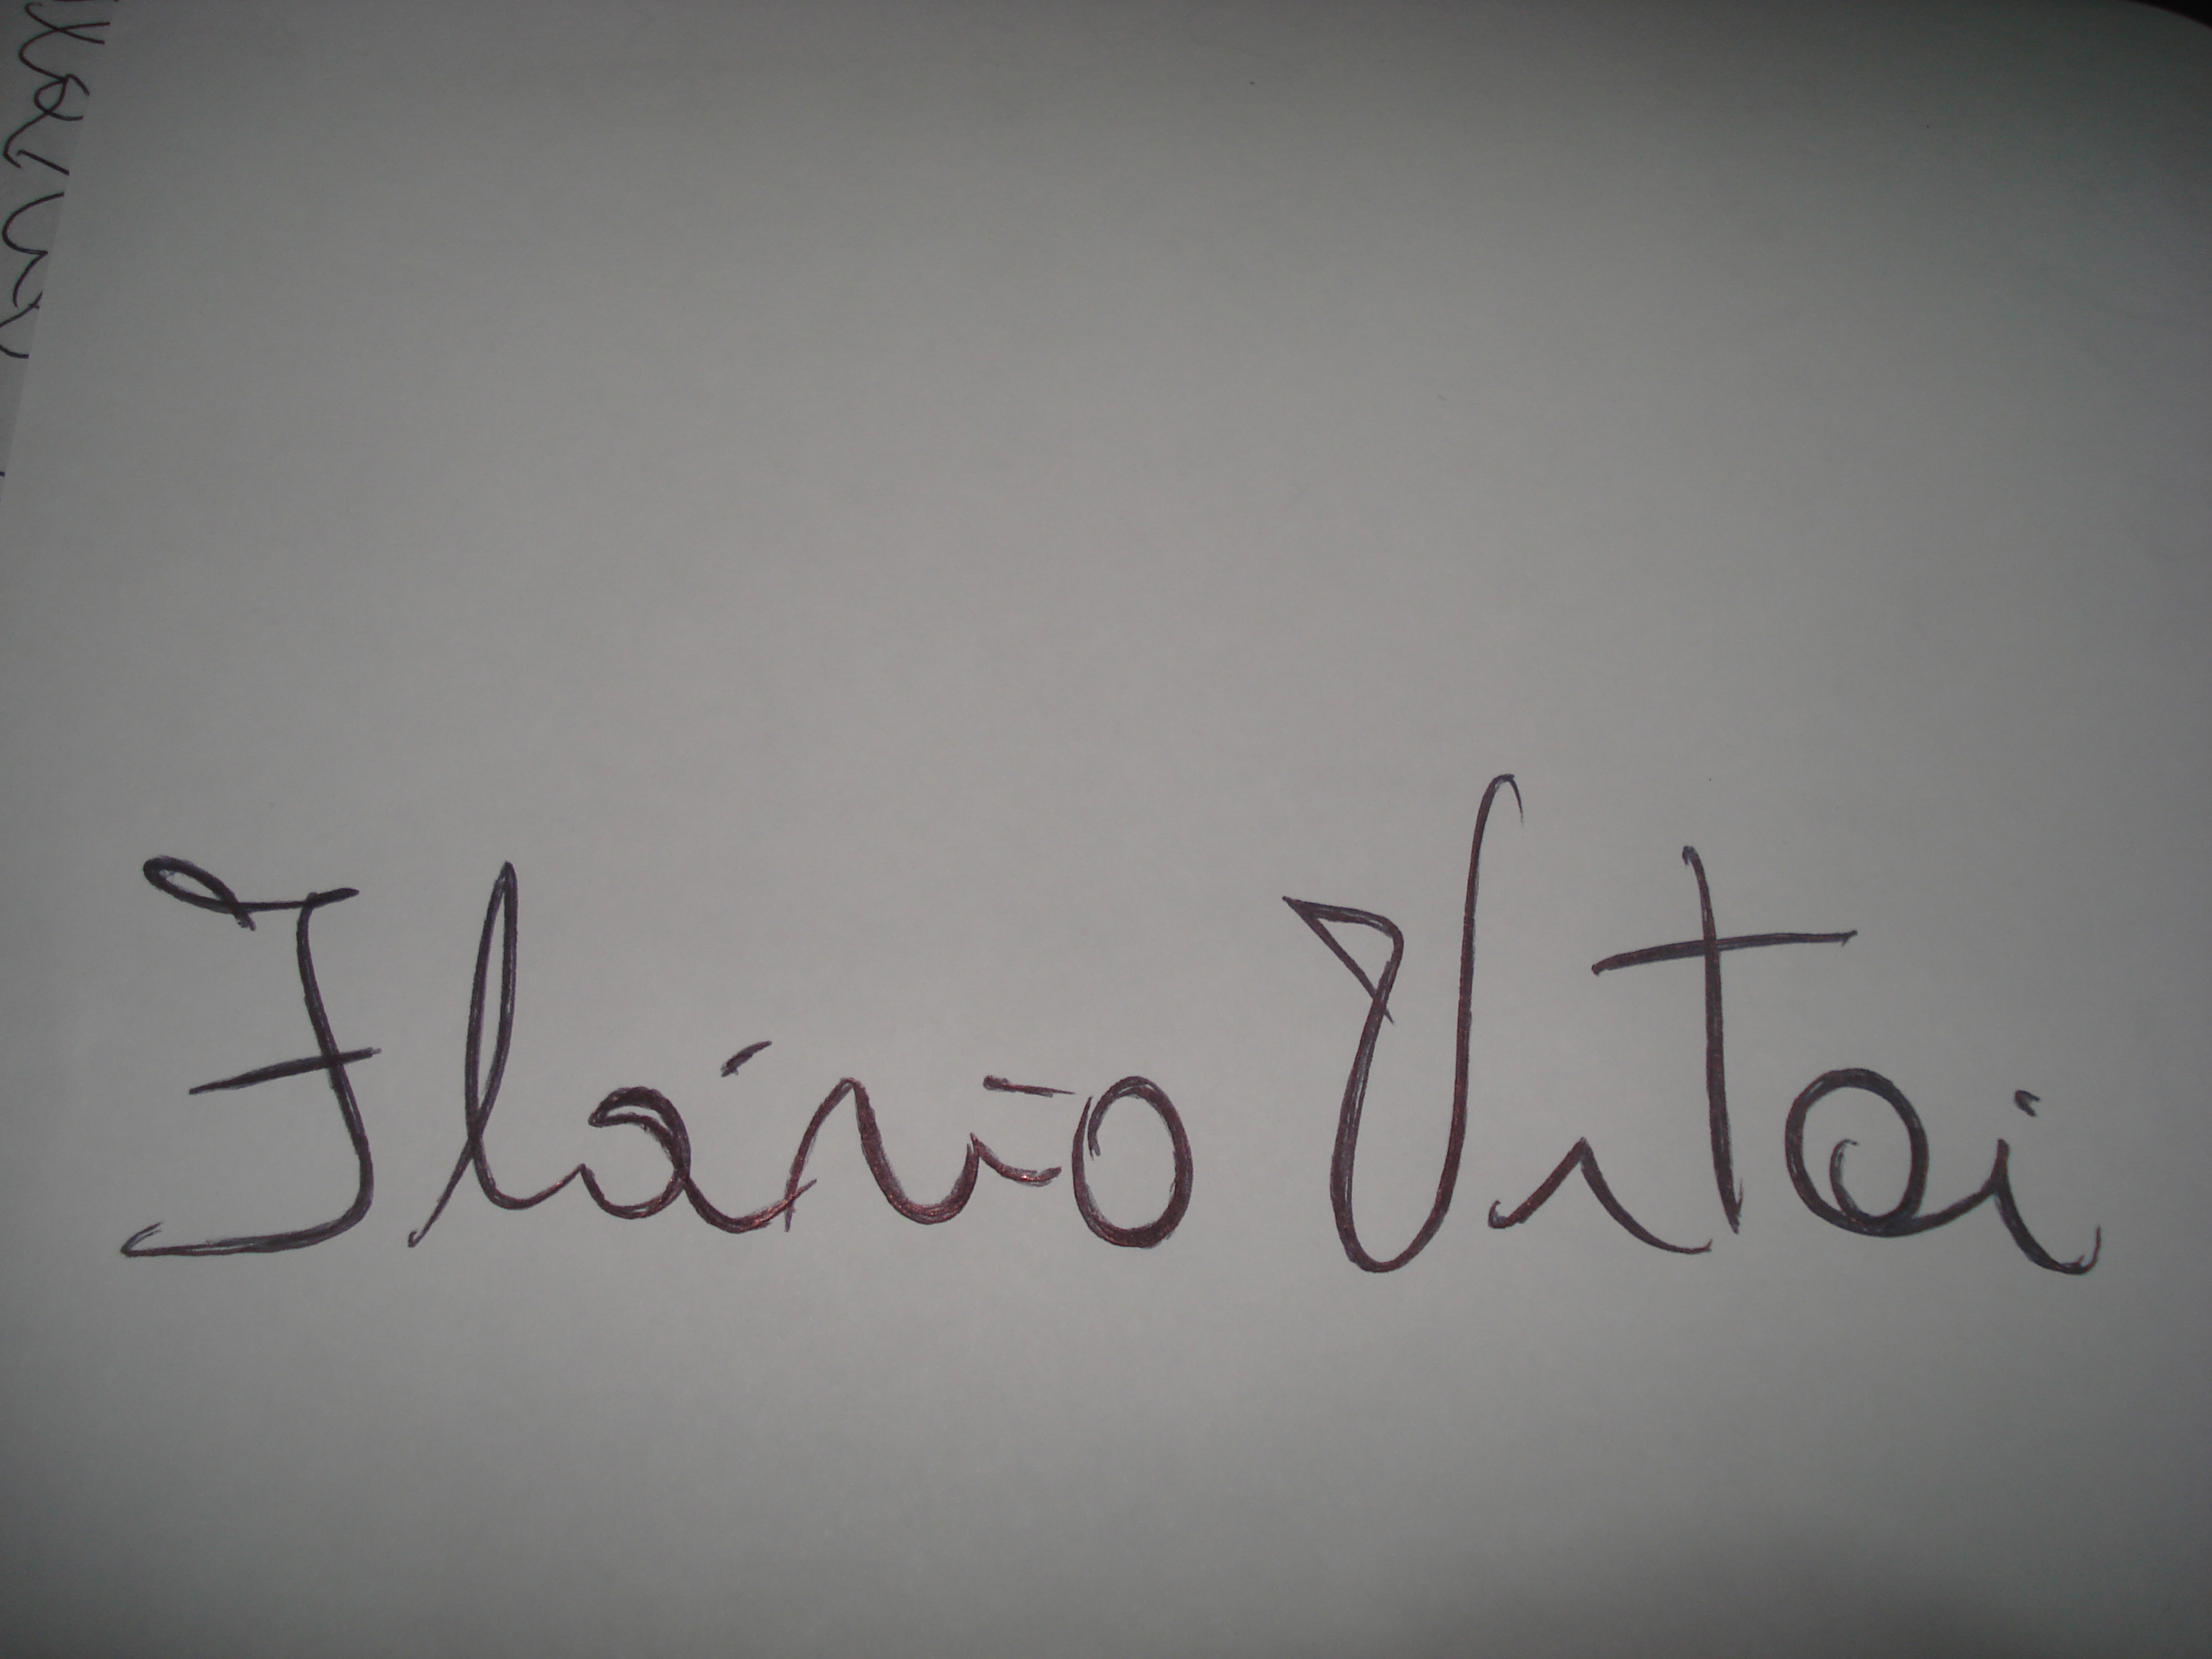 Flávio Vitoi